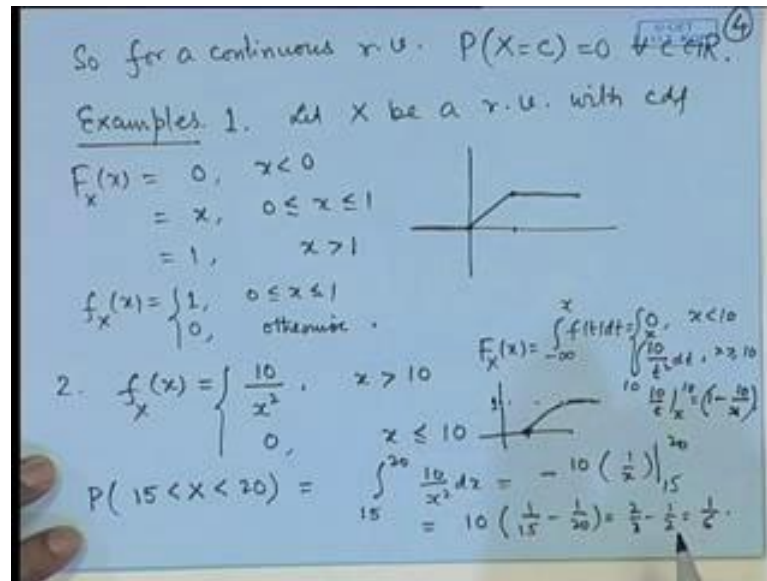 ④
So for a continuous r.v. P(X=c) = 0 ∀ c ∈ ℝ.
Examples. 1. Let X be a r.v. with cdf
F_X(x) = 0, x < 0
= x, 0 ≤ x ≤ 1
= 1, x > 1
f_X(x) = { 1, 0 ≤ x ≤ 1
0, otherwise.
F_X(x) = ∫_{-∞}^{x} f(t)dt = { 0, x < 10
∫_{10}^{x} 10/t² dt, x ≥ 10
10/t |_x^{10} = (1 - 10/x)
2. f_X(x) = { 10/x², x > 10
0, x ≤ 10
1
P(15 < X < 20) = ∫_{15}^{20} 10/x² dx = -10 (1/x) |_{15}^{20}
= 10 (1/15 - 1/20) = 2/3 - 1/2 = 1/6.